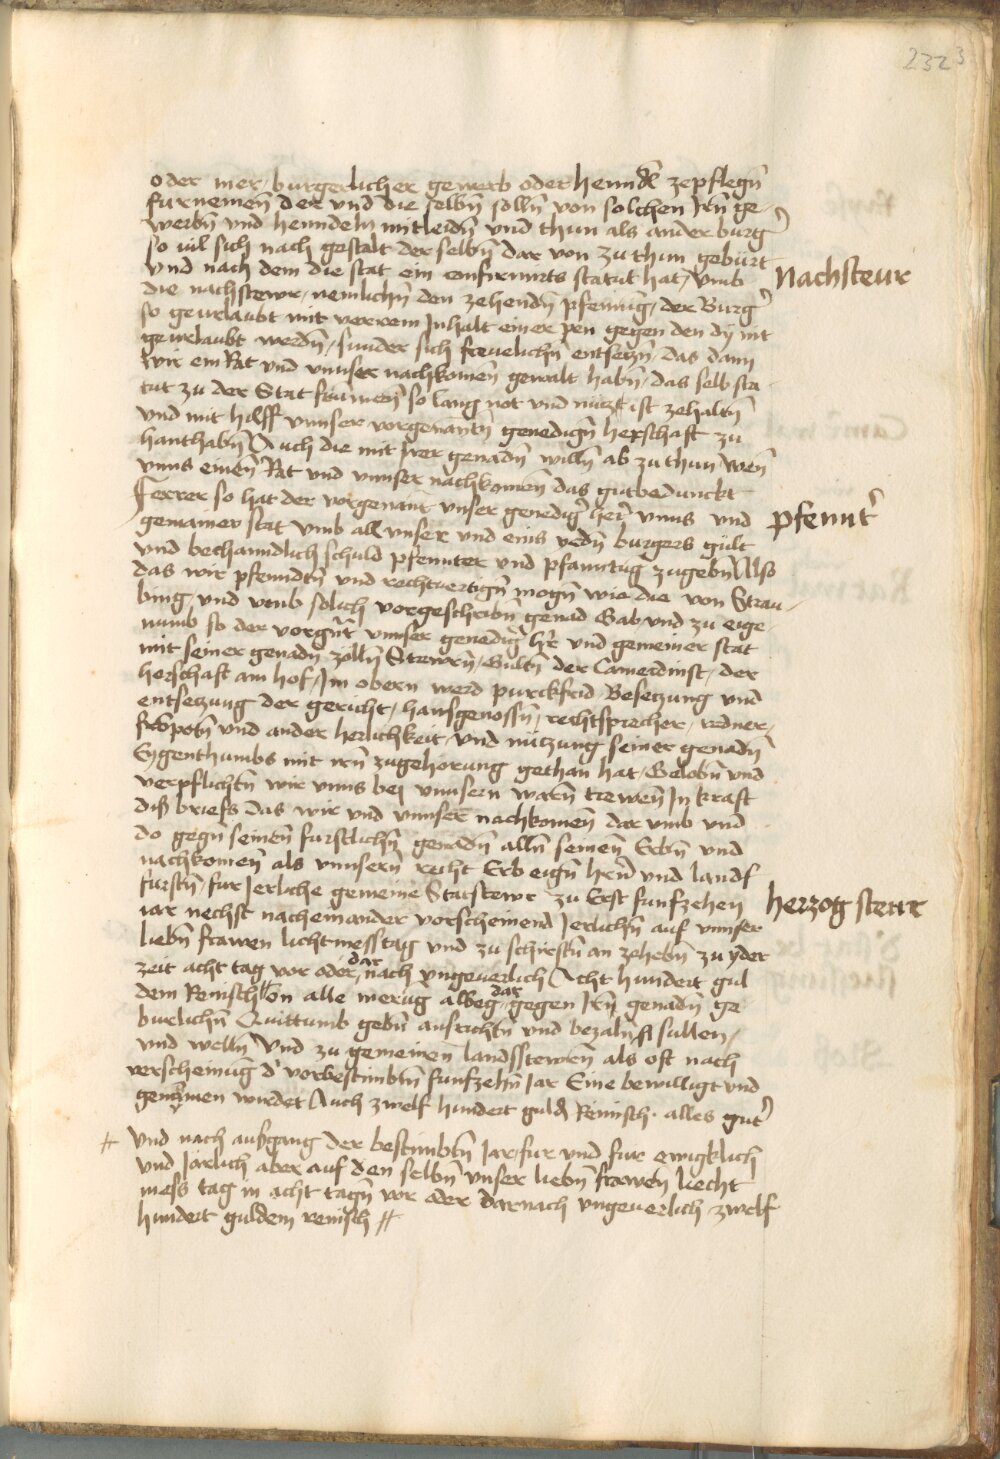 232 3
oder mer burgerlicher gewerb oder henndl zepflegn̄
furnemen̄ der vnd die selbn̄ solln̄ von solchen Irn̄ ge-
werbn̄ vnd henndeln mitleidn̄ vnd thun als ander burg̓
so vil sich nach gestalt der selbn̄ dar von zu thun geburt
vnd nach dem die stat ein confirmirts statut hat, vmb
Nachsteur
die nachstewr, nemlichn̄ den zehendn̄ pfennig, der Burg̓
so geurlaubt mit verrem Inhalt einer pen gegen den dy nit
geurlaubt werdn̄, sunder sich freuelichn̄ entsetzn̄, das dann
wir ein Rat vnd vnnser nachkomen̄ gewalt habn̄, das selb sta-
tut zu der Stat frummen̄ so lang not vnd nutzt ist zehaltn̄
vnd mit hilff vnnser vorgenantn̄ genedign̄ herschaft zu
hanthabn̄ Auch die mit irer genadn̄ willn̄ ab zu thun wen̄
vnns einen̄ Rat vnd vnnser nachkomen̄ das gutbedunckt
Ferrer so hat der vorgenant vnser genedig̓ her̄ vnns vnd
pfennt̓
gemainer stat vmb all vnser vnd eins yedn̄ burgers gult
vnd bechanndlich schuld pfennter und pfanntūg zugebn̄ Also
das wir pfenndtn̄ vnd rechtuertign̄ mogn̄ wie die von Strau-
bing vnd vmb solich vorgeschribn̄ genad Gab vnd zu eige-
numb so der vorgn̄t vnnser genedig̓ h̓r vnd gemeiner stat
mit seiner genadn̄ zölln̄ Stewrn̄, Gultn̄ der Camerdinst, der
herschaft am hof, Im obern werd purckfrid Besetzung vnd
entsetzung der gericht, hausgenossn̄, rechtsprecher, redner,
fronpotn̄ vnd ander herlichkeit, vnd nutzung seiner genadn̄
Eygenthumbs mit irn̄ zugehorung gethan hat, Gelobn̄ vnd
verpflichtn̄ wir vnns bei vnnsern warn̄ trewen̄ In kraft
diß briefs das wir vnd vnnser nachkomen̄ dar vmb vnd
do gegn̄ seinen̄ furstlichn̄ genadn̄ alln̄ seinen̄ Erbn̄ vnd
nachkomen̄ als vnnsern̄ recht Erb eign̄ hern̄ vnd landſ
furstn̄, fur Jerliche gemeine Statstewr zu Erst funfzehen
herzog steur
iar nechst nacheinander vorscheinend Jerlichn̄ auf vnnser
liebn̄ frawen lichtmesstag vnd zu schirstn̄ an zehebn̄ zu yder
zeit acht tag vor oder dar nach vngeuerlich Acht hundert gul
dem Reinisch on alle merūg albeg dar gegen Irn̄ genadn̄ ge
burlichn̄ Quittumb gebn̄ ausrichtn̄ vnd bezaln̄ sullen,
vnd welln̄ Vnd zu gemeinen landsstewrn̄ als oft nach
verscheinūg d̓ vorbestimbtn̄ funfzehn̄ Jar Eine bewilligt vnd
genomen wurdet Auch zwelf hundert guld̄ Reinisch. alles gut̓
# Vnd nach außgang der bestimbtn̄ Jar, fur vnd fur ewigklich
vnd Järlich aber auf den selbn̄ vnser liebn̄ frawen̄ liecht
mess tag in acht tagn̄ vor oder darnach vngeuerlich zwelf
hundert guldem reinisch #